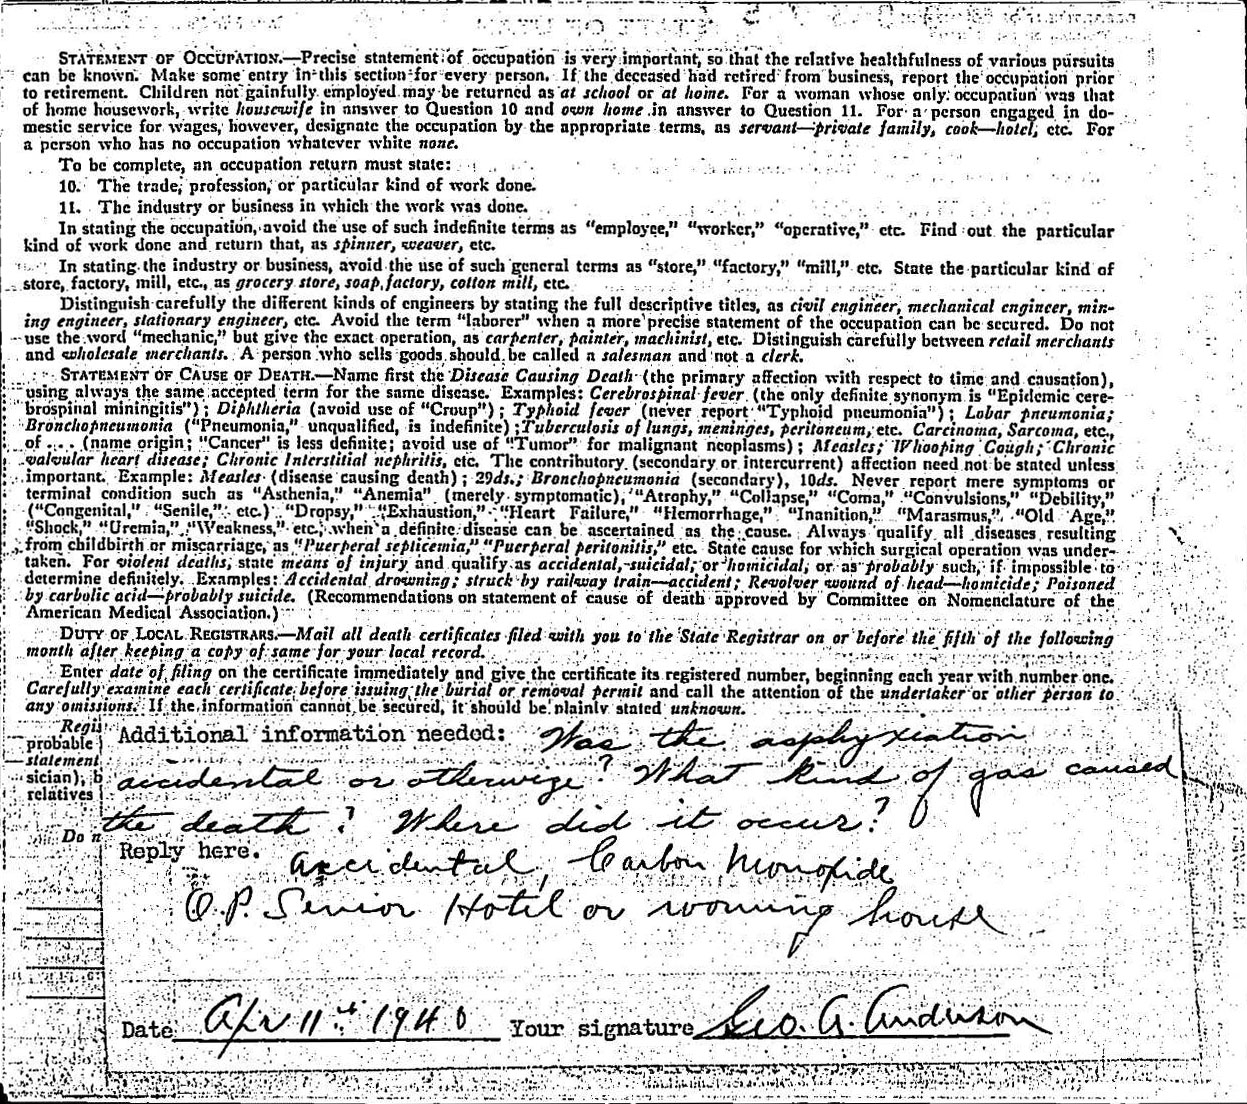 STATEMENT OF OCCUPATION.—Precise statement of occupation is very important, so that the relative healthfulness of various pursuits
can be known. Make some entry in this section for every person. If the deceased had retired from business, report the occupation prior
to retirement. Children not gainfully employed may be returned as at school or at home. For a woman whose only occupation was that
of home housework, write housewife in answer to Question 10 and own home in answer to Question 11. For a person engaged in do-
mestic service for wages, however, designate the occupation by the appropriate terms, as servant—private family, cook—hotel, etc. For
a person who has no occupation whatever white none.
To be complete, an occupation return must state:
10. The trade, profession, or particular kind of work done.
11. The industry or business in which the work was done.
In stating the occupation, avoid the use of such indefinite terms as "employee," "worker," "operative," etc. Find out the particular
kind of work done and return that, as spinner, weaver, etc.
In stating the industry or business, avoid the use of such general terms as "store," "factory," "mill," etc. State the particular kind of
store, factory, mill, etc., as grocery store, soap factory, cotton mill, etc.
Distinguish carefully the different kinds of engineers by stating the full descriptive titles, as civil engineer, mechanical engineer, min-
ing engineer, stationary engineer, etc. Avoid the term "laborer" when a more precise statement of the occupation can be secured. Do not
use the word "mechanic," but give the exact operation, as carpenter, painter, machinist, etc. Distinguish carefully between retail merchants
and wholesale merchants. A person who sells goods should be called a salesman and not a clerk.
STATEMENT OF CAUSE OF DEATH.—Name first the Disease Causing Death (the primary affection with respect to time and causation),
using always the same accepted term for the same disease. Examples: Cerebrospinal fever (the only definite synonym is "Epidemic cere-
brospinal miningitis"); Diphtheria (avoid use of "Croup"); Typhoid fever (never report "Typhoid pneumonia"); Lobar pneumonia;
Bronchopneumonia ("Pneumonia," unqualified, is indefinite); Tuberculosis of lungs, meninges, peritoneum, etc. Carcinoma, Sarcoma, etc.,
of .... (name origin; "Cancer" is less definite; avoid use of "Tumor" for malignant neoplasms); Measles; Whooping Cough; Chronic
valvular heart disease; Chronic Interstitial nephritis, etc. The contributory (secondary or intercurrent) affection need not be stated unless
important. Example: Measles (disease causing death); 29ds.; Bronchopneumonia (secondary), 10ds. Never report mere symptoms or
terminal condition such as "Asthenia," "Anemia" (merely symptomatic), "Atrophy," "Collapse," "Coma," "Convulsions," "Debility,"
("Congenital," "Senile," etc.) "Dropsy," "Exhaustion," "Heart Failure," "Hemorrhage," "Inanition," "Marasmus," "Old Age,"
"Shock," "Uremia," "Weakness," etc., when a definite disease can be ascertained as the cause. Always qualify all diseases resulting
from childbirth or miscarriage, as "Puerperal septicemia," "Puerperal peritonitis," etc. State cause for which surgical operation was under-
taken. For violent deaths, state means of injury and qualify as accidental, suicidal, or homicidal, or as probably such, if impossible to
determine definitely. Examples: Accidental drowning; struck by railway train—accident; Revolver wound of head—homicide; Poisoned
by carbolic acid—probably suicide. (Recommendations on statement of cause of death approved by Committee on Nomenclature of the
American Medical Association.)
DUTY OF LOCAL REGISTRARS.—Mail all death certificates filed with you to the State Registrar on or before the fifth of the following
month after keeping a copy of same for your local record.
Enter date of filing on the certificate immediately and give the certificate its registered number, beginning each year with number one.
Carefully examine each certificate before issuing the burial or removal permit and call the attention of the undertaker or other person to
any omissions. If the information cannot be secured, it should be plainly stated unknown.
Regis
probable
statement
sician); b
relatives
Do n
Additional information needed: Was the asphyxiation
accidental or otherwize? What kind of gas caused
the death? Where did it occur?
Reply here. accidental, Carbon Monoxide
O.P. Senior Hotel or rooming house
Date Apr 11th 1940 Your signature Geo. A. Anderson